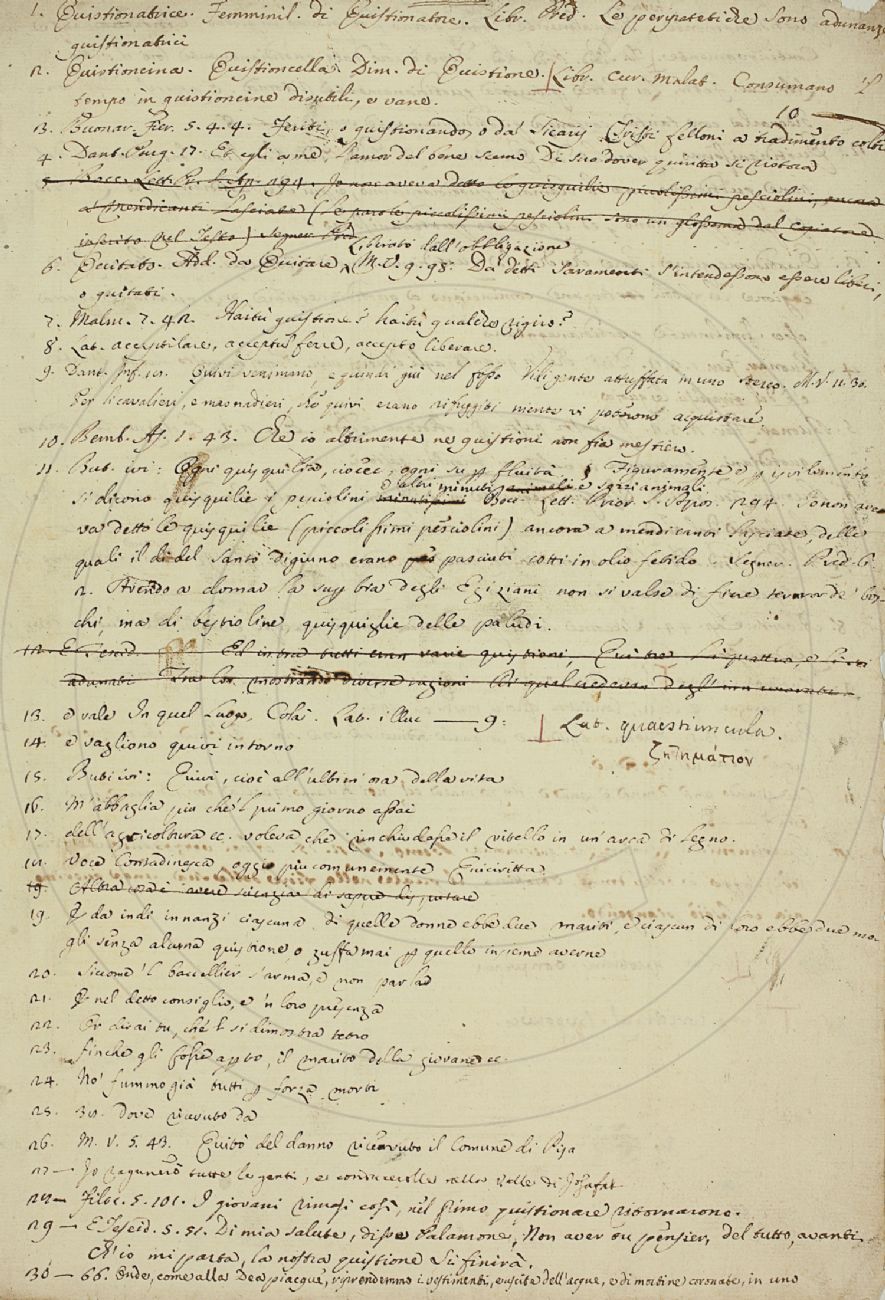 1. Quistionatrice. Femminil. di Quistionatore. Libr. Pred. Le peripatetiche sono adunanze
quistionatrici
2. Quistioncina. Quistioncella. Dim. di Quistione. Libr. cur. malat. Consumano 'l
tempo in quistioncine disutili, e vane.
10
13. Buonar. Fier. 5. 4. 4. Feriti, o quistionando, o da' Sicarj Tristi felloni a tradimento colti
4. Dant. Purg. 17. Et egli a me, l'amor del bene scemo Di suo dover quiritta si ristora
5. Bocc. Lett. Pr. S. Ap. 294. Io non aveva detto le quisquilie piccolissimi pesciolini, ancora
a' mendicanti lasciate (le parole piccolissimi pesciolini sono un glossema del copiatore
inserito nel Testo) Segner. Pred.
Liberato dall'obbligazione
6. Quitato. Add. da Quitare M. V. 9. 98. Da' detti saramenti s'intendessono essere liberi,
o quitati.
7. Malm. 7. 42. Haitù quistione? haitù qualche rigiro?
8. Lat. acceptilare, acceptum ferre, accepto liberare.
9. Dant. Inf. 18. Quivi venimmo, e quindi giù nel fosso Vidi gente attuffata in uno sterco. M. V. 11. 30.
Per li cavalieri, e masnadieri, che quivi erano rifuggiti niente vi poterono acquistare
10. Bemb. As. 1. 43. Che io altrimente ne quistioni non fia mestiero.
11. But. ivi: Ogni quisquilia, cioè, ogni superfluità. Figuramente e per avvilimento
ed altri minuti e sozzi animali
si dicono quisquilie i pesciolini minutissimi Bocc. Lett. Prior. S. Apos. 294. Io non ave-
va detto le quisquilie (piccolissimi pesciolini) ancora a mendicanti lasciate, delle
quali il dì del santo digiuno erano pasciuti cotti in olio fetido. Segner. Pred. 6.
2. Avendo a domar la superbia degli Egiziani non si valse di fiere terror de' bos-
chi, ma di bestioline, quisquiglie delle paludi.
12. E Teseid. Et intra tutti eran varie quistioni, Qui tre, lì quattro, e lì sei
adunati Tra lor mostrando diverse ragioni
13. e vale In quel Luogo, Colà. Lat. illuc — 9:
Lat. quaestiuncula.
ζητημάτιον
14. e vagliono quivi intorno
15. But. ivi: Quivi, cioè all'ultim'ora della vita
16. M'abbaglia più che 'l primo giorno assai
17. dell'agricoltura ec. voleva che rinchiudesse il vitello in un'arca di legno.
18. Voce Contadinesca, oggi più comunemente Quiciritta
19. Altra cosa è avere scienza di sapere disputare
19. E da indi innanzi ciascuna di quelle donne ebbe due mariti, e ciascun di loro ebbe due mo-
gli senza alcuna quistione, o zuffa mai per quello insieme averne
20. Siccome 'l baccellier s'arma, e non parla
21. E nel detto consiglio, e 'n loro presenza
22. Or dirai tu, ch'e' si dimostra tetro
23. finche gli fosse apposto, il marito della giovane ec.
24. No' fummo già tutti per forza morti
25. 30. dove ricevuto da
26. M. V. 5. 43. Quitò del danno ricevuto il Comune di Pisa
27 — Io ragunerò tutte le genti, e condurrolle nella valle di Josafat
28 — Filoc. 5. 101. I giovani rimasi così, nel primo quistionare ritornarono.
29 — E Teseid. 5. 51. Di mia salute, disse Palamone, Non aver tu pensier, del tutto, avanti
Ch'io mi parta, la nostra quistione si finirà.
30 — 66. Onde, come alla Dea piacque, riprendemmo i vestimenti, e uscite dell'acque, e di mortine coronate, in uno